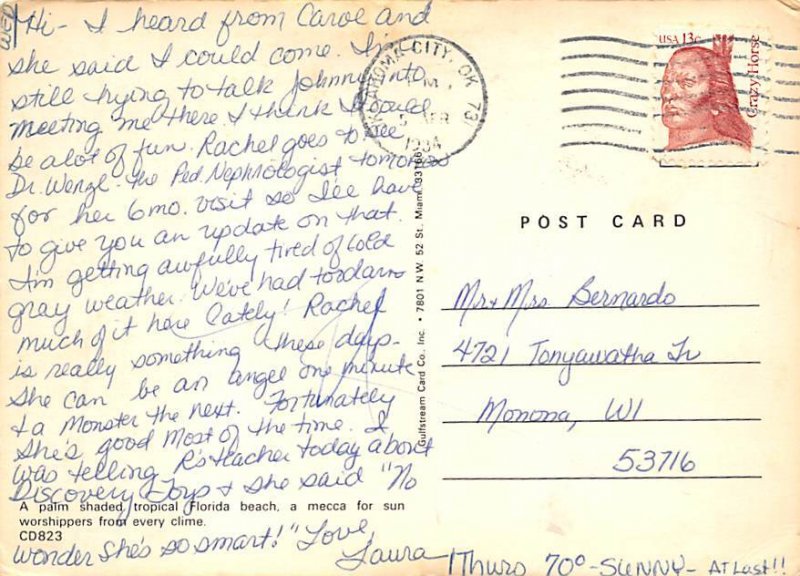 WED
Hi- I heard from Carol and
she said I could come. I'm
still trying to talk Johnny into
meeting me there I think I could
be a lot of fun. Rachel goes to see
Dr. Wenzl- the Ped Nephrologist tomorrow
for her 6mo. visit so I'll have
to give you an update on that.
I'm getting awfully tired of cold
gray weather. We've had to darn
much of it here lately! Rachel
is really something these days-
She can be an angel one minute
& a Monster the next. Fortunately
She's good most of the time. I
was telling R's teacher today about
Discovery Toys & she said "No
A palm shaded tropical Florida beach, a mecca for sun
worshippers from every clime.
CD823
wonder she's so smart!" Love,
Laura
Thurs 70°-SUNNY- AT Last!!
Gulfstream Card Co., Inc. • 7801 N.W. 52 St. Miami 33166
OKLAHOMA CITY, OK 731
PM
5
1984
USA 13c
Crazy Horse
POST CARD
Mr & Mrs Bernardo
4721 Tonyawatha Tr
Monona, WI
53716